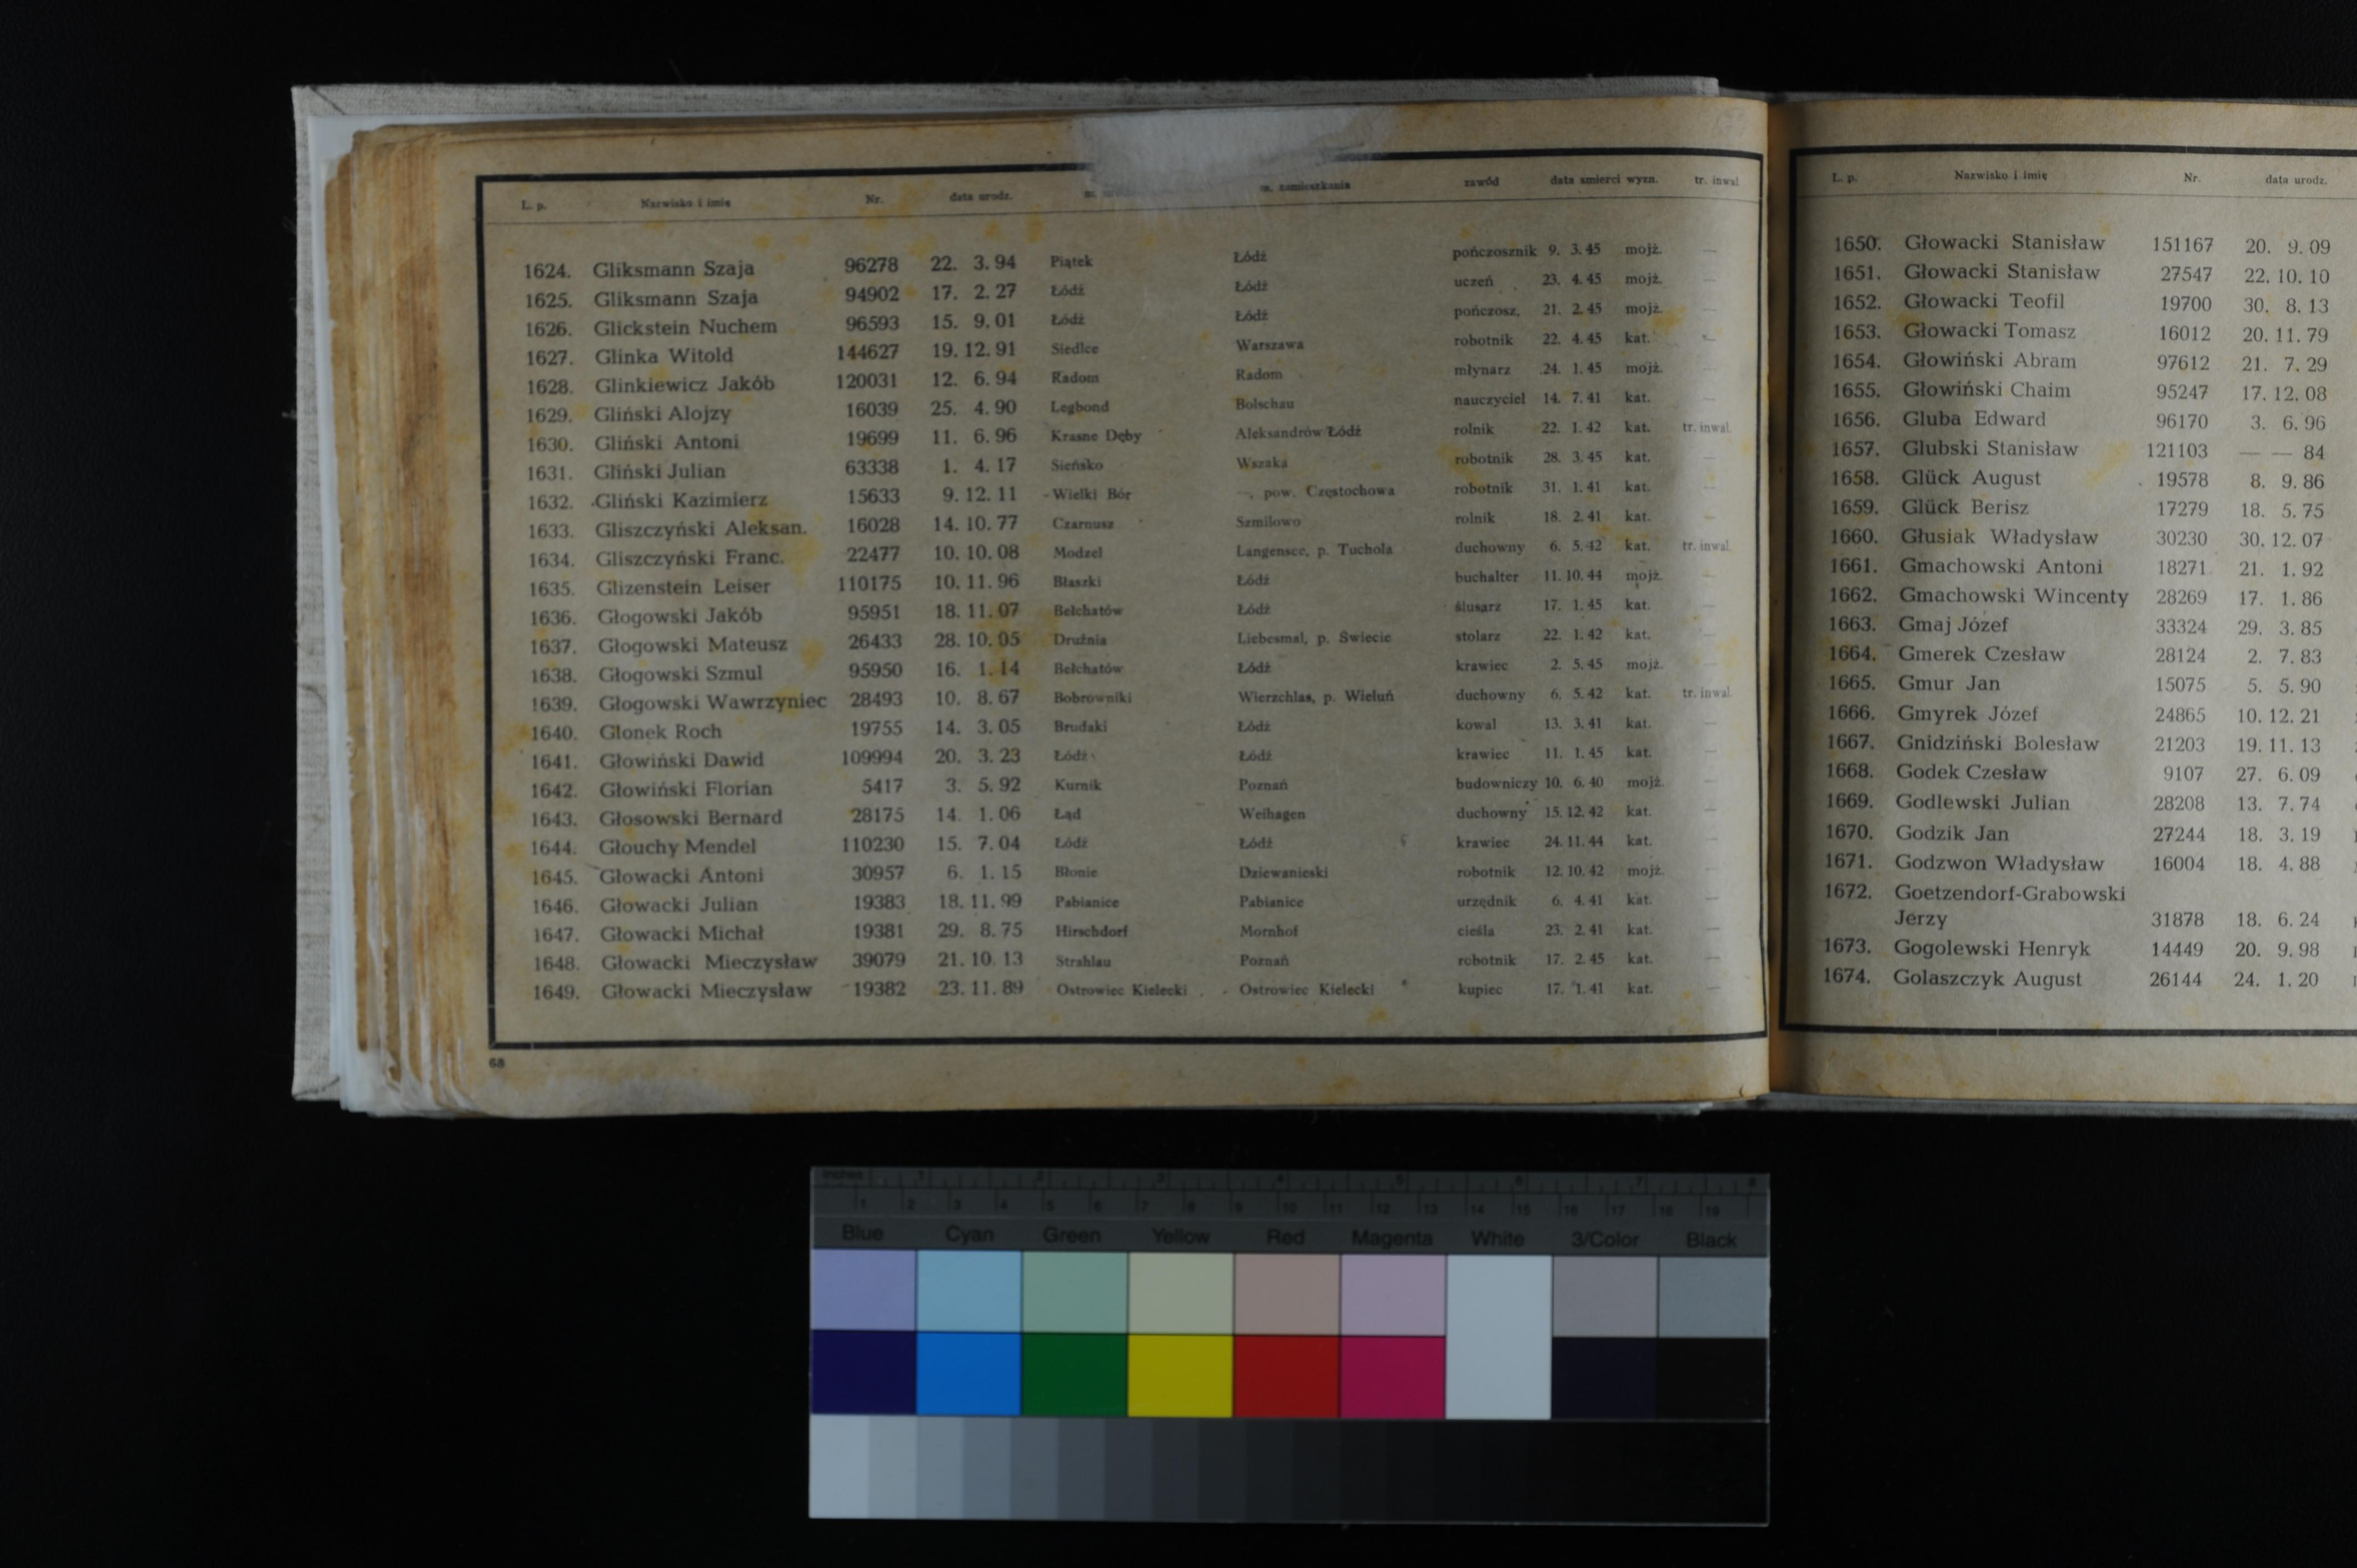 L. p. Nazwisko i imię Nr. data urodz. m. zamieszkania zawód data śmierci wyzn. tr. inwal
1624. Gliksmann Szaja 96278 22. 3. 94 Piątek Łódź pończosznik 9. 3. 45 mojż. —
1625. Gliksmann Szaja 94902 17. 2. 27 Łódź Łódź uczeń 23. 4. 45 mojż. —
1626. Glickstein Nuchem 96593 15. 9. 01 Łódź Łódź pończosz. 21. 2. 45 mojż. —
1627. Glinka Witold 144627 19. 12. 91 Siedlce Warszawa robotnik 22. 4. 45 kat. —
1628. Glinkiewicz Jakób 120031 12. 6. 94 Radom Radom młynarz 24. 1. 45 mojż. —
1629. Gliński Alojzy 16039 25. 4. 90 Legbond Bolschau nauczyciel 14. 7. 41 kat. —
1630. Gliński Antoni 19699 11. 6. 96 Krasne Dęby Aleksandrów/Łódź rolnik 22. 1. 42 kat. tr. inwal.
1631. Gliński Julian 63338 1. 4. 17 Sieńsko Wszaka robotnik 28. 3. 45 kat. —
1632. Gliński Kazimierz 15633 9. 12. 11 Wielki Bór —, pow. Częstochowa robotnik 31. 1. 41 kat. —
1633. Gliszczyński Aleksan. 16028 14. 10. 77 Czarnusz Szmilowo rolnik 18. 2. 41 kat. —
1634. Gliszczyński Franc. 22477 10. 10. 08 Modzel Langensee, p. Tuchola duchowny 6. 5. 42 kat. tr. inwal.
1635. Glizenstein Leiser 110175 10. 11. 96 Błaszki Łódź buchalter 11. 10. 44 mojż. —
1636. Głogowski Jakób 95951 18. 11. 07 Bełchatów Łódź ślusarz 17. 1. 45 kat. —
1637. Głogowski Mateusz 26433 28. 10. 05 Drużnia Liebesmal, p. Świecie stolarz 22. 1. 42 kat. —
1638. Głogowski Szmul 95950 16. 1. 14 Bełchatów Łódź krawiec 2. 5. 45 mojż. —
1639. Głogowski Wawrzyniec 28493 10. 8. 67 Bobrowniki Wierzchlas, p. Wieluń duchowny 6. 5. 42 kat. tr. inwal.
1640. Glonek Roch 19755 14. 3. 05 Brudaki Łódź kowal 13. 3. 41 kat. —
1641. Głowiński Dawid 109994 20. 3. 23 Łódź Łódź krawiec 11. 1. 45 kat. —
1642. Głowiński Florian 5417 3. 5. 92 Kurnik Poznań budowniczy 10. 6. 40 mojż. —
1643. Głosowski Bernard 28175 14. 1. 06 Ląd Weihagen duchowny 15. 12. 42 kat. —
1644. Głouchy Mendel 110230 15. 7. 04 Łódź Łódź krawiec 24. 11. 44 kat. —
1645. Głowacki Antoni 30957 6. 1. 15 Błonie Dziewanieski robotnik 12. 10. 42 mojż. —
1646. Głowacki Julian 19383 18. 11. 99 Pabianice Pabianice urzędnik 6. 4. 41 kat. —
1647. Głowacki Michał 19381 29. 8. 75 Hirschdorf Mornhof cieśla 23. 2. 41 kat. —
1648. Głowacki Mieczysław 39079 21. 10. 13 Strahlau Poznań robotnik 17. 2. 45 kat. —
1649. Głowacki Mieczysław 19382 23. 11. 89 Ostrowiec Kielecki Ostrowiec Kielecki kupiec 17. 1. 41 kat. —
68
L. p. Nazwisko i imię Nr. data urodz.
1650. Głowacki Stanisław 151167 20. 9. 09
1651. Głowacki Stanisław 27547 22. 10. 10
1652. Głowacki Teofil 19700 30. 8. 13
1653. Głowacki Tomasz 16012 20. 11. 79
1654. Głowiński Abram 97612 21. 7. 29
1655. Głowiński Chaim 95247 17. 12. 08
1656. Gluba Edward 96170 3. 6. 96
1657. Glubski Stanisław 121103 — — 84
1658. Glück August 19578 8. 9. 86
1659. Glück Berisz 17279 18. 5. 75
1660. Głusiak Władysław 30230 30. 12. 07
1661. Gmachowski Antoni 18271 21. 1. 92
1662. Gmachowski Wincenty 28269 17. 1. 86
1663. Gmaj Józef 33324 29. 3. 85
1664. Gmerek Czesław 28124 2. 7. 83
1665. Gmur Jan 15075 5. 5. 90
1666. Gmyrek Józef 24865 10. 12. 21
1667. Gnidziński Bolesław 21203 19. 11. 13
1668. Godek Czesław 9107 27. 6. 09
1669. Godlewski Julian 28208 13. 7. 74
1670. Godzik Jan 27244 18. 3. 19
1671. Godzwon Władysław 16004 18. 4. 88
1672. Goetzendorf-Grabowski
Jerzy 31878 18. 6. 24
1673. Gogolewski Henryk 14449 20. 9. 98
1674. Golaszczyk August 26144 24. 1. 20
inches 1 2 3 4 5 6 7 8
1 2 3 4 5 6 7 8 9 10 11 12 13 14 15 16 17 18 19
Blue Cyan Green Yellow Red Magenta White 3/Color Black